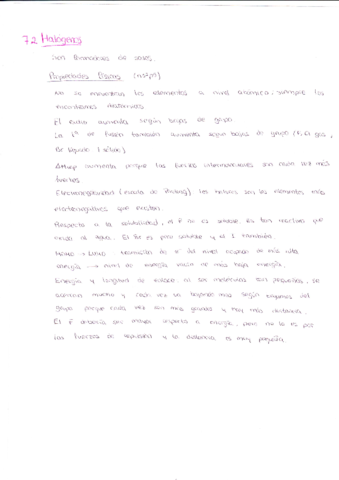 7.2 Halógenos
Son formadores de sales.
Propiedades físicas (ns²p⁵)
No se encuentran los elementos a nivel atómico, siempre los
encontramos diatómicos
El radio aumenta según bajas de grupo
La Tª de fusión también aumenta según bajas de grupo (F, Cl gas,
Br líquido I sólido)
ΔHvap aumenta porque las fuerzas intermoleculares son cada vez más
fuertes
Electronegatividad (escala de Pauling) los halog. son los elementos más
electronegativos que existen
Respecto a la solubilidad, el F no es soluble, es tan reactivo que
oxida al agua. El Br es poco soluble y el I también.
HOMO → LUMO transición de e⁻ del nivel ocupado de más alta
energía → nivel de energía vacía de más baja energía.
Energía y longitud de enlace, si las moléculas son pequeñas, se
acercan mucho y cada vez va bajando más según bajamos del
grupo porque cada vez son más grandes y hay más distancia.
El F debería ser mayor respecto a energía, pero no lo es por
las fuerzas de repulsión y la distancia es muy pequeña